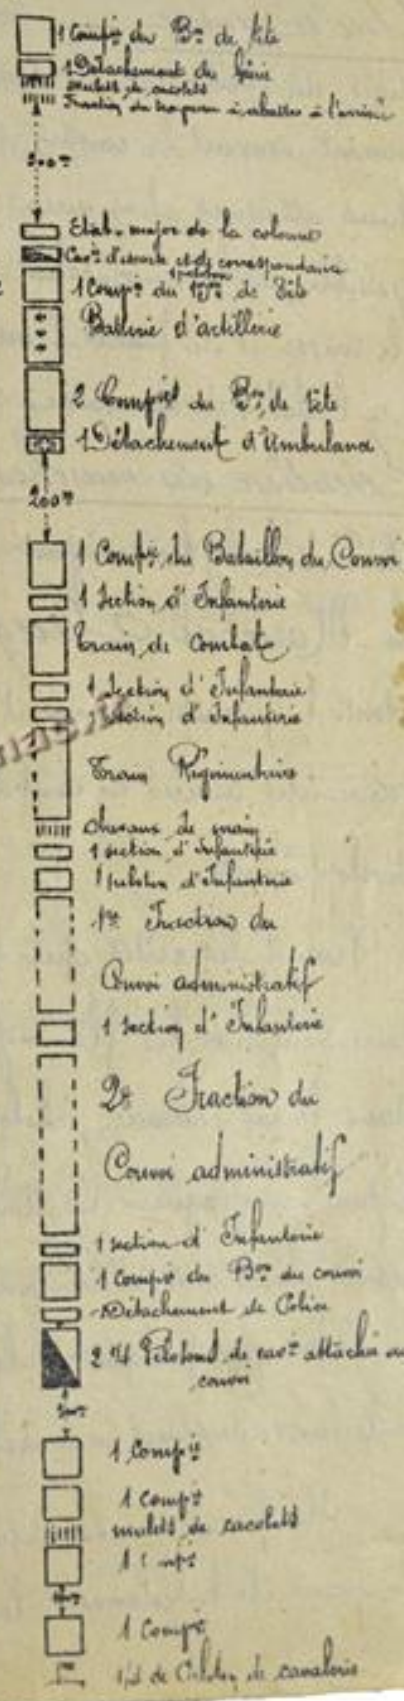 1 Compie du Bon de tête
1 Détachement du Génie
mulets de cacolets
Fraction du troupeau à abattre à l'arrivée
Etat-major de la colonne
Cavie d'escorte et de correspondance
1 peloton
1 Compie du Bon de Tête
Batterie d'artillerie
2 Compies du Bon de tête
1 Détachement d'Ambulance
200m
1 Compie du Bataillon du Convoi
1 Section d'Infanterie
Train de Combat
1 Section d'Infanterie
1 Section d'Infanterie
Train Régimentaire
chevaux de main
1 section d'Infanterie
1 peloton d'Infanterie
1re Fraction du
Convoi administratif
1 section d'Infanterie
2e Fraction du
Convoi administratif
1 section d'Infanterie
1 Compie du Bon du convoi
Détachement de Police
2 1/4 Pelotons de cavie attachée au
convoi
1 Compie
1 Compie
mulets de cacolets
1 Compie
1 Compie
1/4 de Peloton de cavalerie